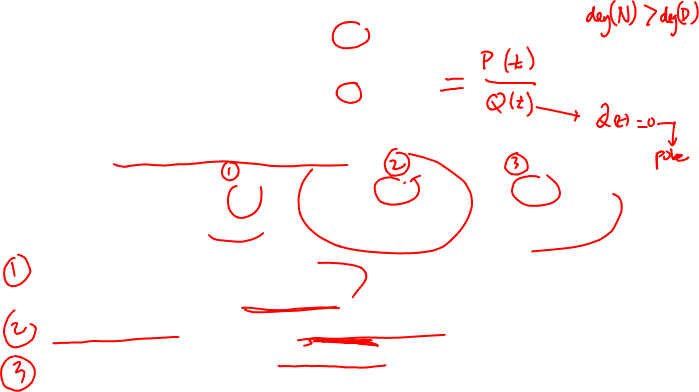 deg(N) > deg(D)
= P(t) / Q(t) → Q(t) = 0 → pole
① ② ③
①
②
③